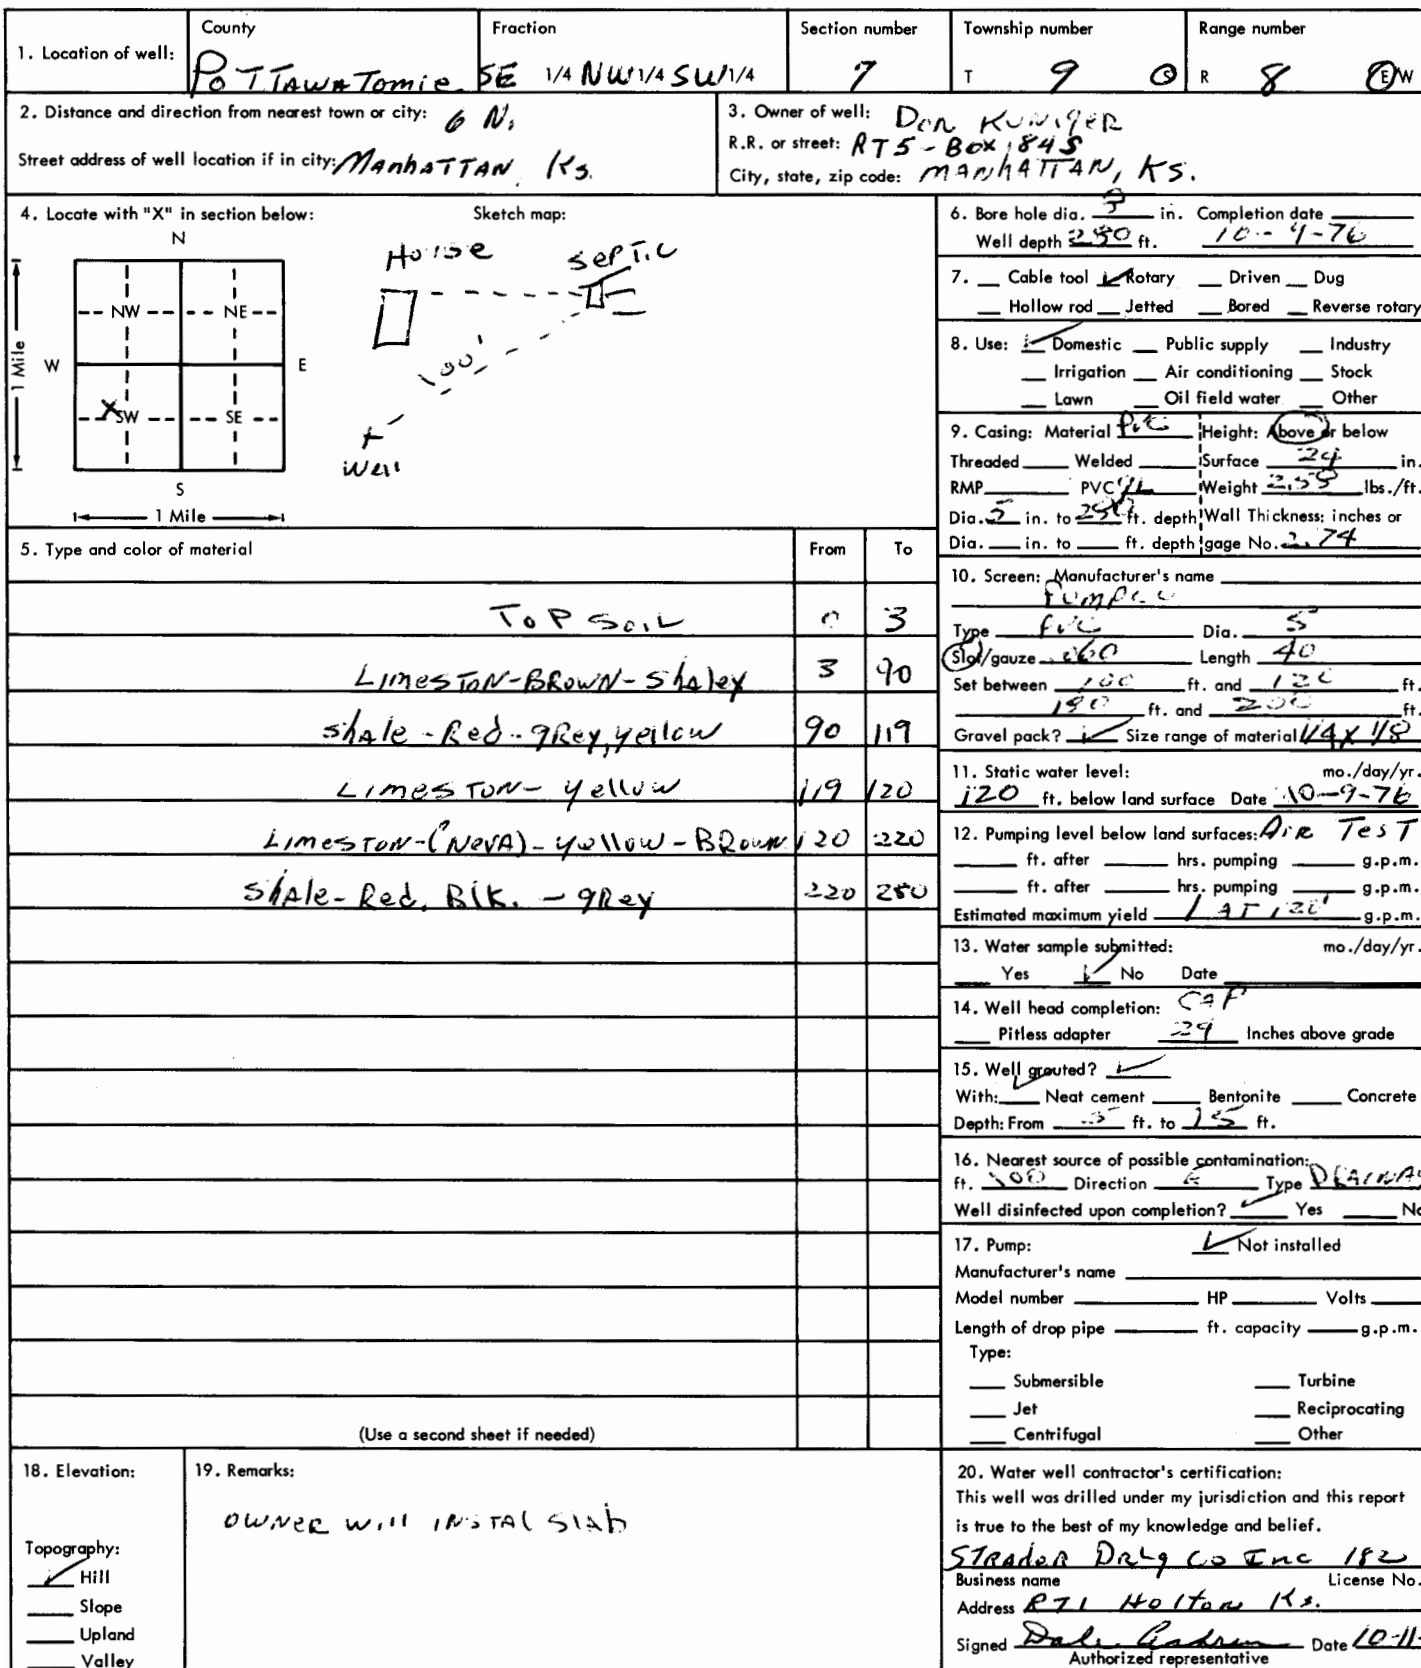 County Fraction Section number Township number Range number
1. Location of well: PoTTawaTomie SE 1/4 NW 1/4 SW 1/4 7 T 9 S R 8 E W
2. Distance and direction from nearest town or city: 6 N.
Street address of well location if in city: ManhATTAN, Ks.
3. Owner of well: Don
R.R. or street: RT5 - Box 84S
City, state, zip code: MANHATTAN, KS.
4. Locate with "X" in section below: Sketch map:
N
House SepTic
NW NE
W E
1 Mile
100'
X SW SE
Well
S
1 Mile
5. Type and color of material From To
ToP SoiL 0 3
LimesTon-BROWN-Shaley 3 90
Shale - Red - gRey, yellow 90 119
LimesTon- yellow 119 120
LimesTon-(NevA)-yellow-BRown 120 220
ShAle-Red. Blk. - gRey 220 280
(Use a second sheet if needed)
6. Bore hole dia. in. Completion date
Well depth ft. 10-9-76
7. Cable tool Rotary Driven Dug
Hollow rod Jetted Bored Reverse rotary
8. Use: Domestic Public supply Industry
Irrigation Air conditioning Stock
Lawn Oil field water Other
9. Casing: Material PVC Height: Above or below
Threaded Welded Surface 24 in.
RMP PVC Weight lbs./ft.
Dia. 5 in. to ft. depth Wall Thickness: inches or
Dia. in. to ft. depth gage No. 2.74
10. Screen: Manufacturer's name
Type PVC Dia. 5
Slot/gauze .060 Length 40
Set between 100 ft. and 120 ft.
ft. and 200 ft.
Gravel pack? Size range of material 1/4 x 1/8
11. Static water level: mo./day/yr.
120 ft. below land surface Date 10-9-76
12. Pumping level below land surfaces: AiR TesT
ft. after hrs. pumping g.p.m.
ft. after hrs. pumping g.p.m.
Estimated maximum yield 1 AT 120' g.p.m.
13. Water sample submitted: mo./day/yr.
Yes No Date
14. Well head completion: CAP
Pitless adapter 24 Inches above grade
15. Well grouted?
With: Neat cement Bentonite Concrete
Depth: From 5 ft. to 15 ft.
16. Nearest source of possible contamination:
ft. 100 Direction E Type
Well disinfected upon completion? Yes No
17. Pump: Not installed
Manufacturer's name
Model number HP Volts
Length of drop pipe ft. capacity g.p.m.
Type:
Submersible Turbine
Jet Reciprocating
Centrifugal Other
18. Elevation:
Topography:
Hill
Slope
Upland
Valley
19. Remarks:
OWNER Will INSTAL Slab
20. Water well contractor's certification:
This well was drilled under my jurisdiction and this report
is true to the best of my knowledge and belief.
STRADER DRLg Co Inc 182
Business name License No.
Address RT1 Holton Ks.
Signed Dale Date 10-11-
Authorized representative